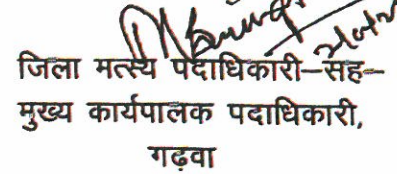 जिला मत्स्य पदाधिकारी–सह–
मुख्य कार्यपालक पदाधिकारी,
गढ़वा